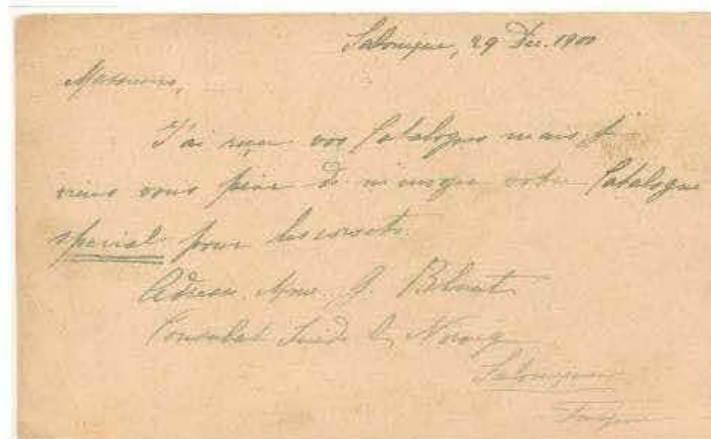 Salonique, 29 Dec. 1900
Messieurs,
J'ai reçu vos Catalogues mais je
viens vous prier de m'envoyer votre Catalogue
spécial pour les corsets.
Adresse Mme. J.
Consulat Suède & Norvège
Salonique
Turquie